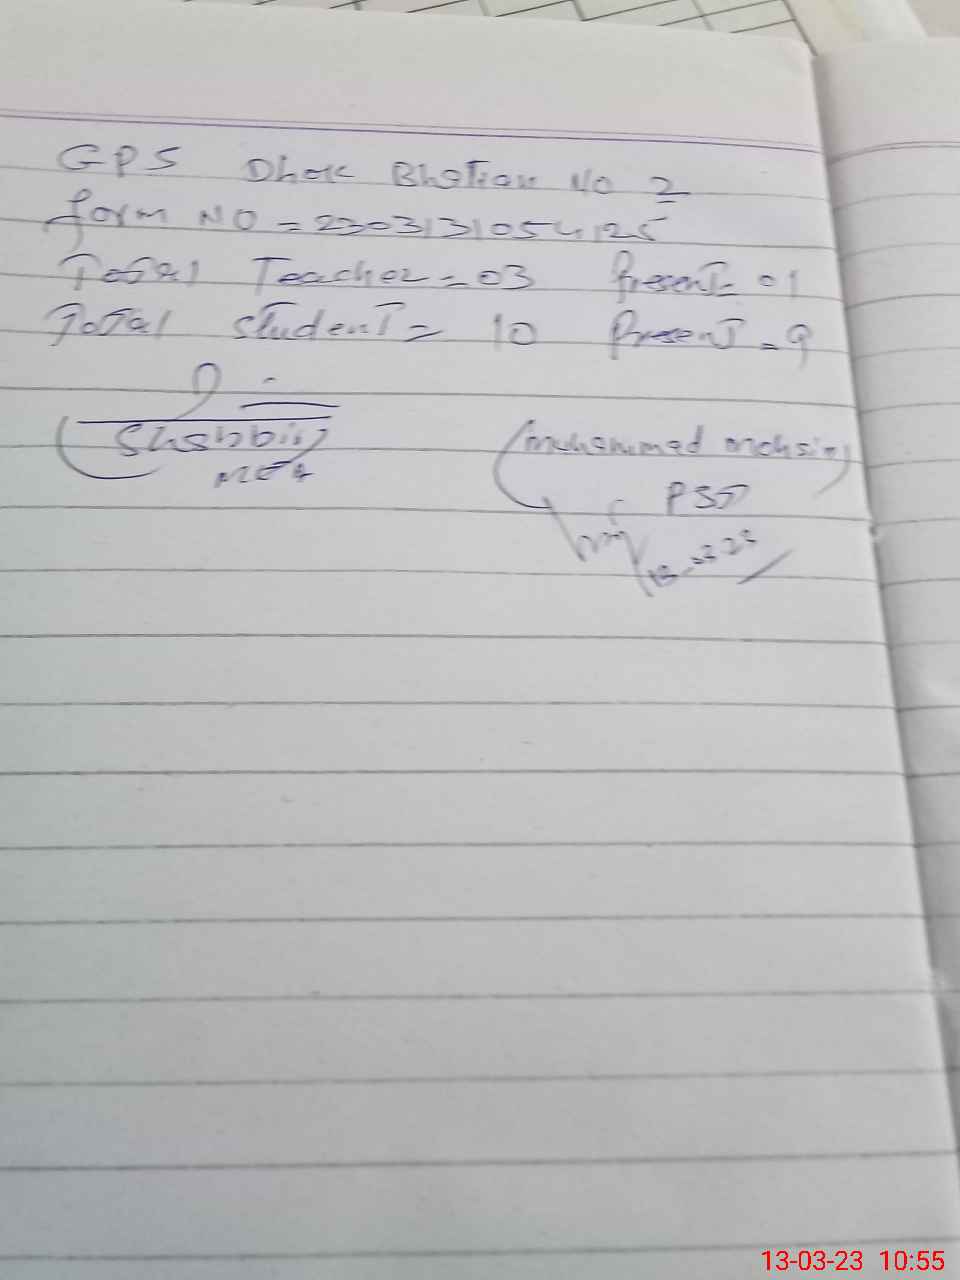 GPS Dhok Bhatian No 2
form NO = 2303131054125
Total Teacher = 03 Present = 01
Total Student = 10 Present = 9
(Shabbir)
MEA
(Muhammad Mohsin)
PST
13-03-23
13-03-23 10:55